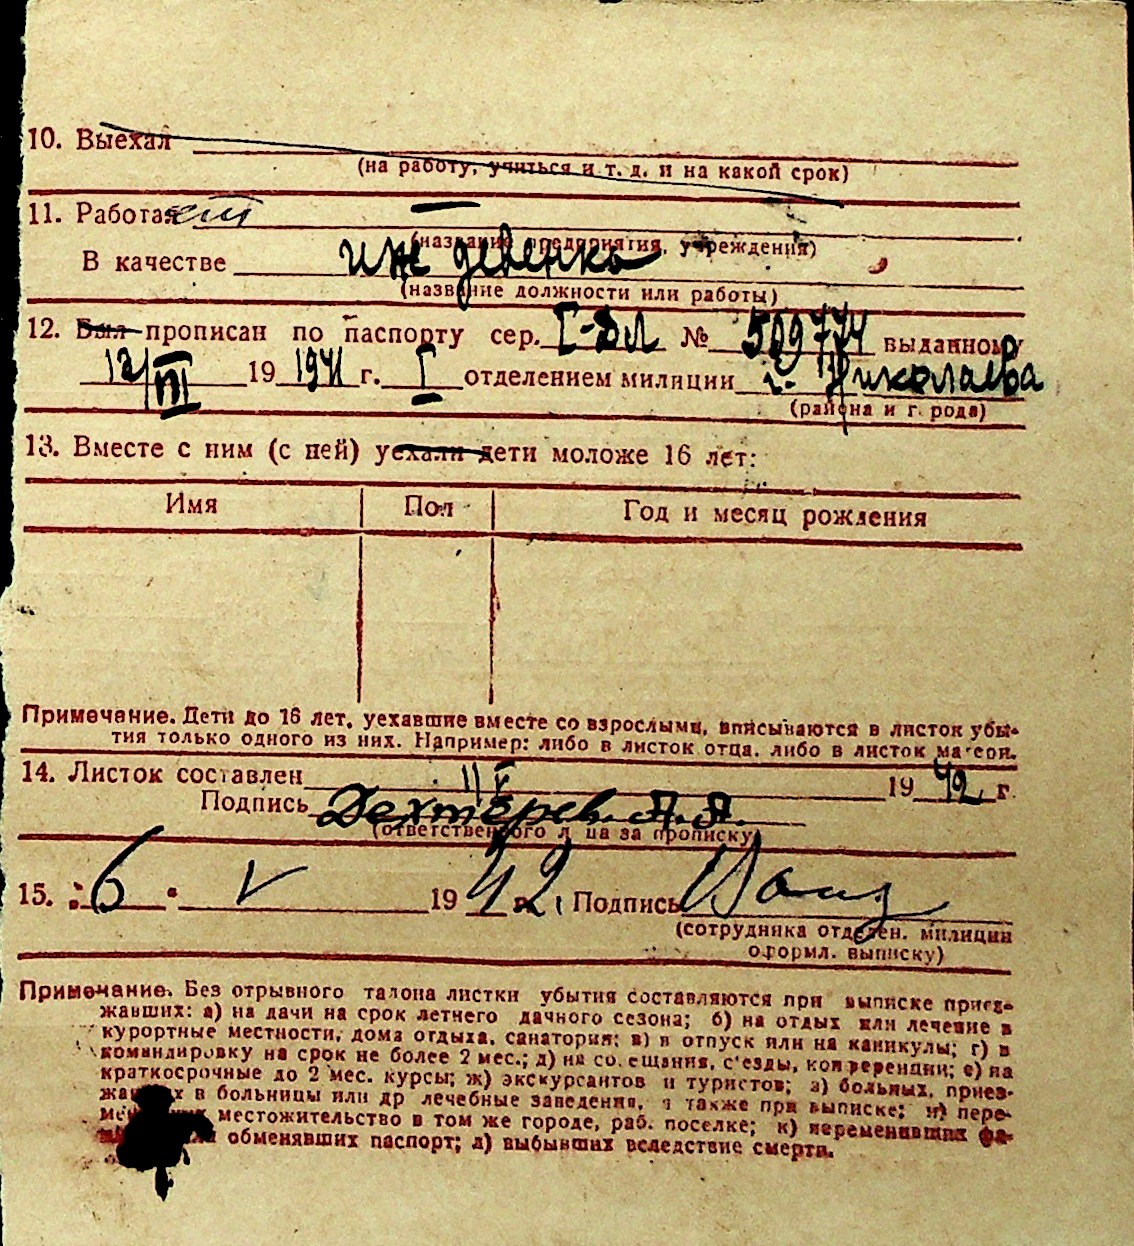 10. Выехал
(на работу, учиться и т. д. и на какой срок)
11. Работает —
(название предприятия, учреждения)
В качестве иждевенка
(название должности или работы)
12. Был прописан по паспорту сер. I-ДЛ № 509774 выданному
12/III 19 1941 г. I отделением милиции г. Николаева
(района и города)
13. Вместе с ним (с ней) уехали дети моложе 16 лет:
Имя Пол Год и месяц рождения
Примечание. Дети до 16 лет, уехавшие вместе со взрослыми, вписываются в листок убы-
тия только одного из них. Например: либо в листок отца, либо в листок матери.
14. Листок составлен 11/V 19 42 г
Подпись Дехтерев. А. А.
(ответственного лица за прописку)
15. "6" V 19 42 г. Подпись
(сотрудника отделен. милиции
оформл. выписку)
Примечание. Без отрывного талона листки убытия составляются при выписке приез-
жавших: а) на дачи на срок летнего дачного сезона; б) на отдых или лечение в
курортные местности, дома отдыха, санатория; в) в отпуск или на каникулы; г) в
командировку на срок не более 2 мес.; д) на совещания, с'езды, конференции; е) на
краткосрочные до 2 мес. курсы; ж) экскурсантов и туристов; з) больных, приез-
жавших в больницы или др лечебные заведения, а также при выписке; и) пере-
местожительство в том же городе, раб. поселке; к) переменивших фа-
обменявших паспорт; л) выбывших вследствие смерти.